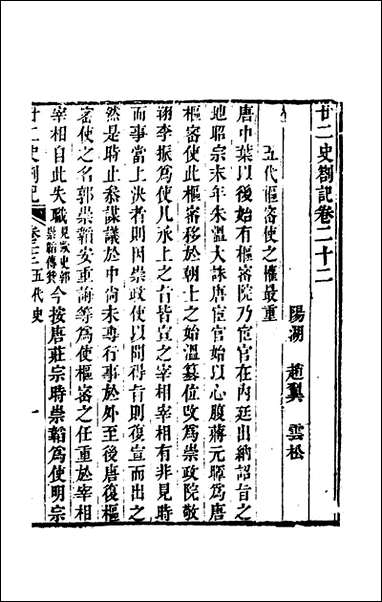 廿二史劄記卷二十二
陽湖 趙翼 雲松
五代樞密使之權最重
唐中葉以後始有樞密院乃宦官在內廷出納詔旨之
地昭宗末年朱溫大誅唐宦官始以心腹蔣元暉為唐
樞密使此樞密移於朝士之始溫篡位改為崇政院敬
翔李振為使凡承上之旨皆宣之宰相宰相有非見時
而事當上決者則因崇政使以聞得旨則復宣而出之
然是時止參謀議於中尚未專行事於外至後唐復樞
密使之名郭崇韜安重誨等為使樞密之任重於宰相
宰相自此失職見歐史郭崇韜傳贊今按唐莊宗時崇韜為使明宗
廿二史劄記 卷二十二 五代史 一